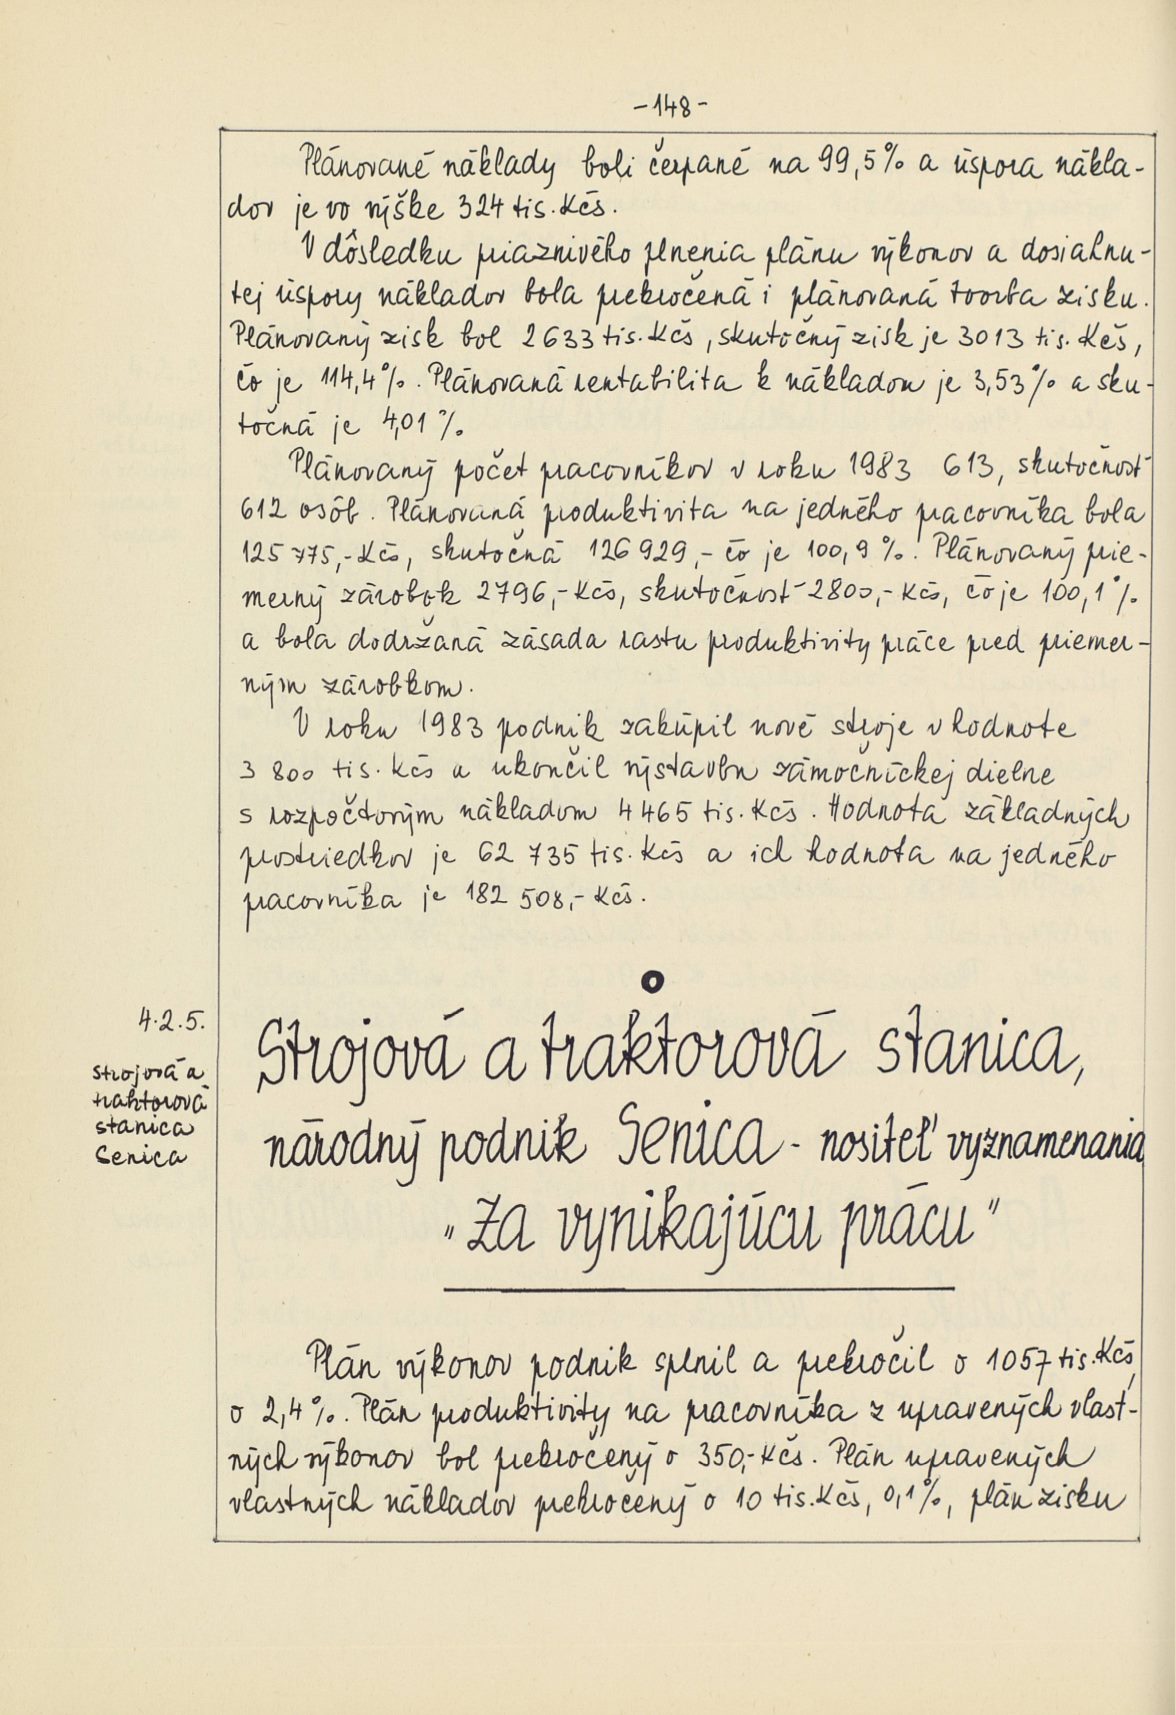 -148-
Plánované náklady boli čerpané na 99,5% a úspora nákla-
dov je vo výške 324 tis. Kčs.
V dôsledku priaznivého plnenia plánu výkonov a dosiahnu-
tej úspory nákladov bola prekročená i plánovaná tvorba zisku.
Plánovaný zisk bol 2633 tis. Kčs, skutočný zisk je 3013 tis. Kčs,
čo je 114,4%. Plánovaná rentabilita k nákladom je 3,53% a sku-
točná je 4,01%.
Plánovaný počet pracovníkov v roku 1983 613, skutočnosť
612 osôb. Plánovaná produktivita na jedného pracovníka bola
125 775,- Kčs, skutočná 126 929,- čo je 100,9%. Plánovaný prie-
merný zárobok 2796,- Kčs, skutočnosť 2800,- Kčs, čo je 100,1%
a bola dodržaná zásada rastu produktivity práce pred priemer-
ným zárobkom.
V roku 1983 podnik zakúpil nové stroje v hodnote
3 800 tis. Kčs a ukončil výstavbu zámočníckej dielne
s rozpočtovým nákladom 4 465 tis. Kčs. Hodnota základných
prostriedkov je 62 735 tis. Kčs a ich hodnota na jedného
pracovníka je 182 508,- Kčs.
4.2.5.
Strojová a
traktorová
stanica
Senica
Strojová a traktorová stanica,
národný podnik Senica - nositeľ vyznamenania
"Za vynikajúcu prácu"
Plán výkonov podnik splnil a prekročil o 1057 tis. Kčs,
o 2,4%. Plán produktivity na pracovníka z upravených vlast-
ných výkonov bol prekročený o 350,- Kčs. Plán upravených
vlastných nákladov prekročený o 10 tis. Kčs, 0,1%, plán zisku